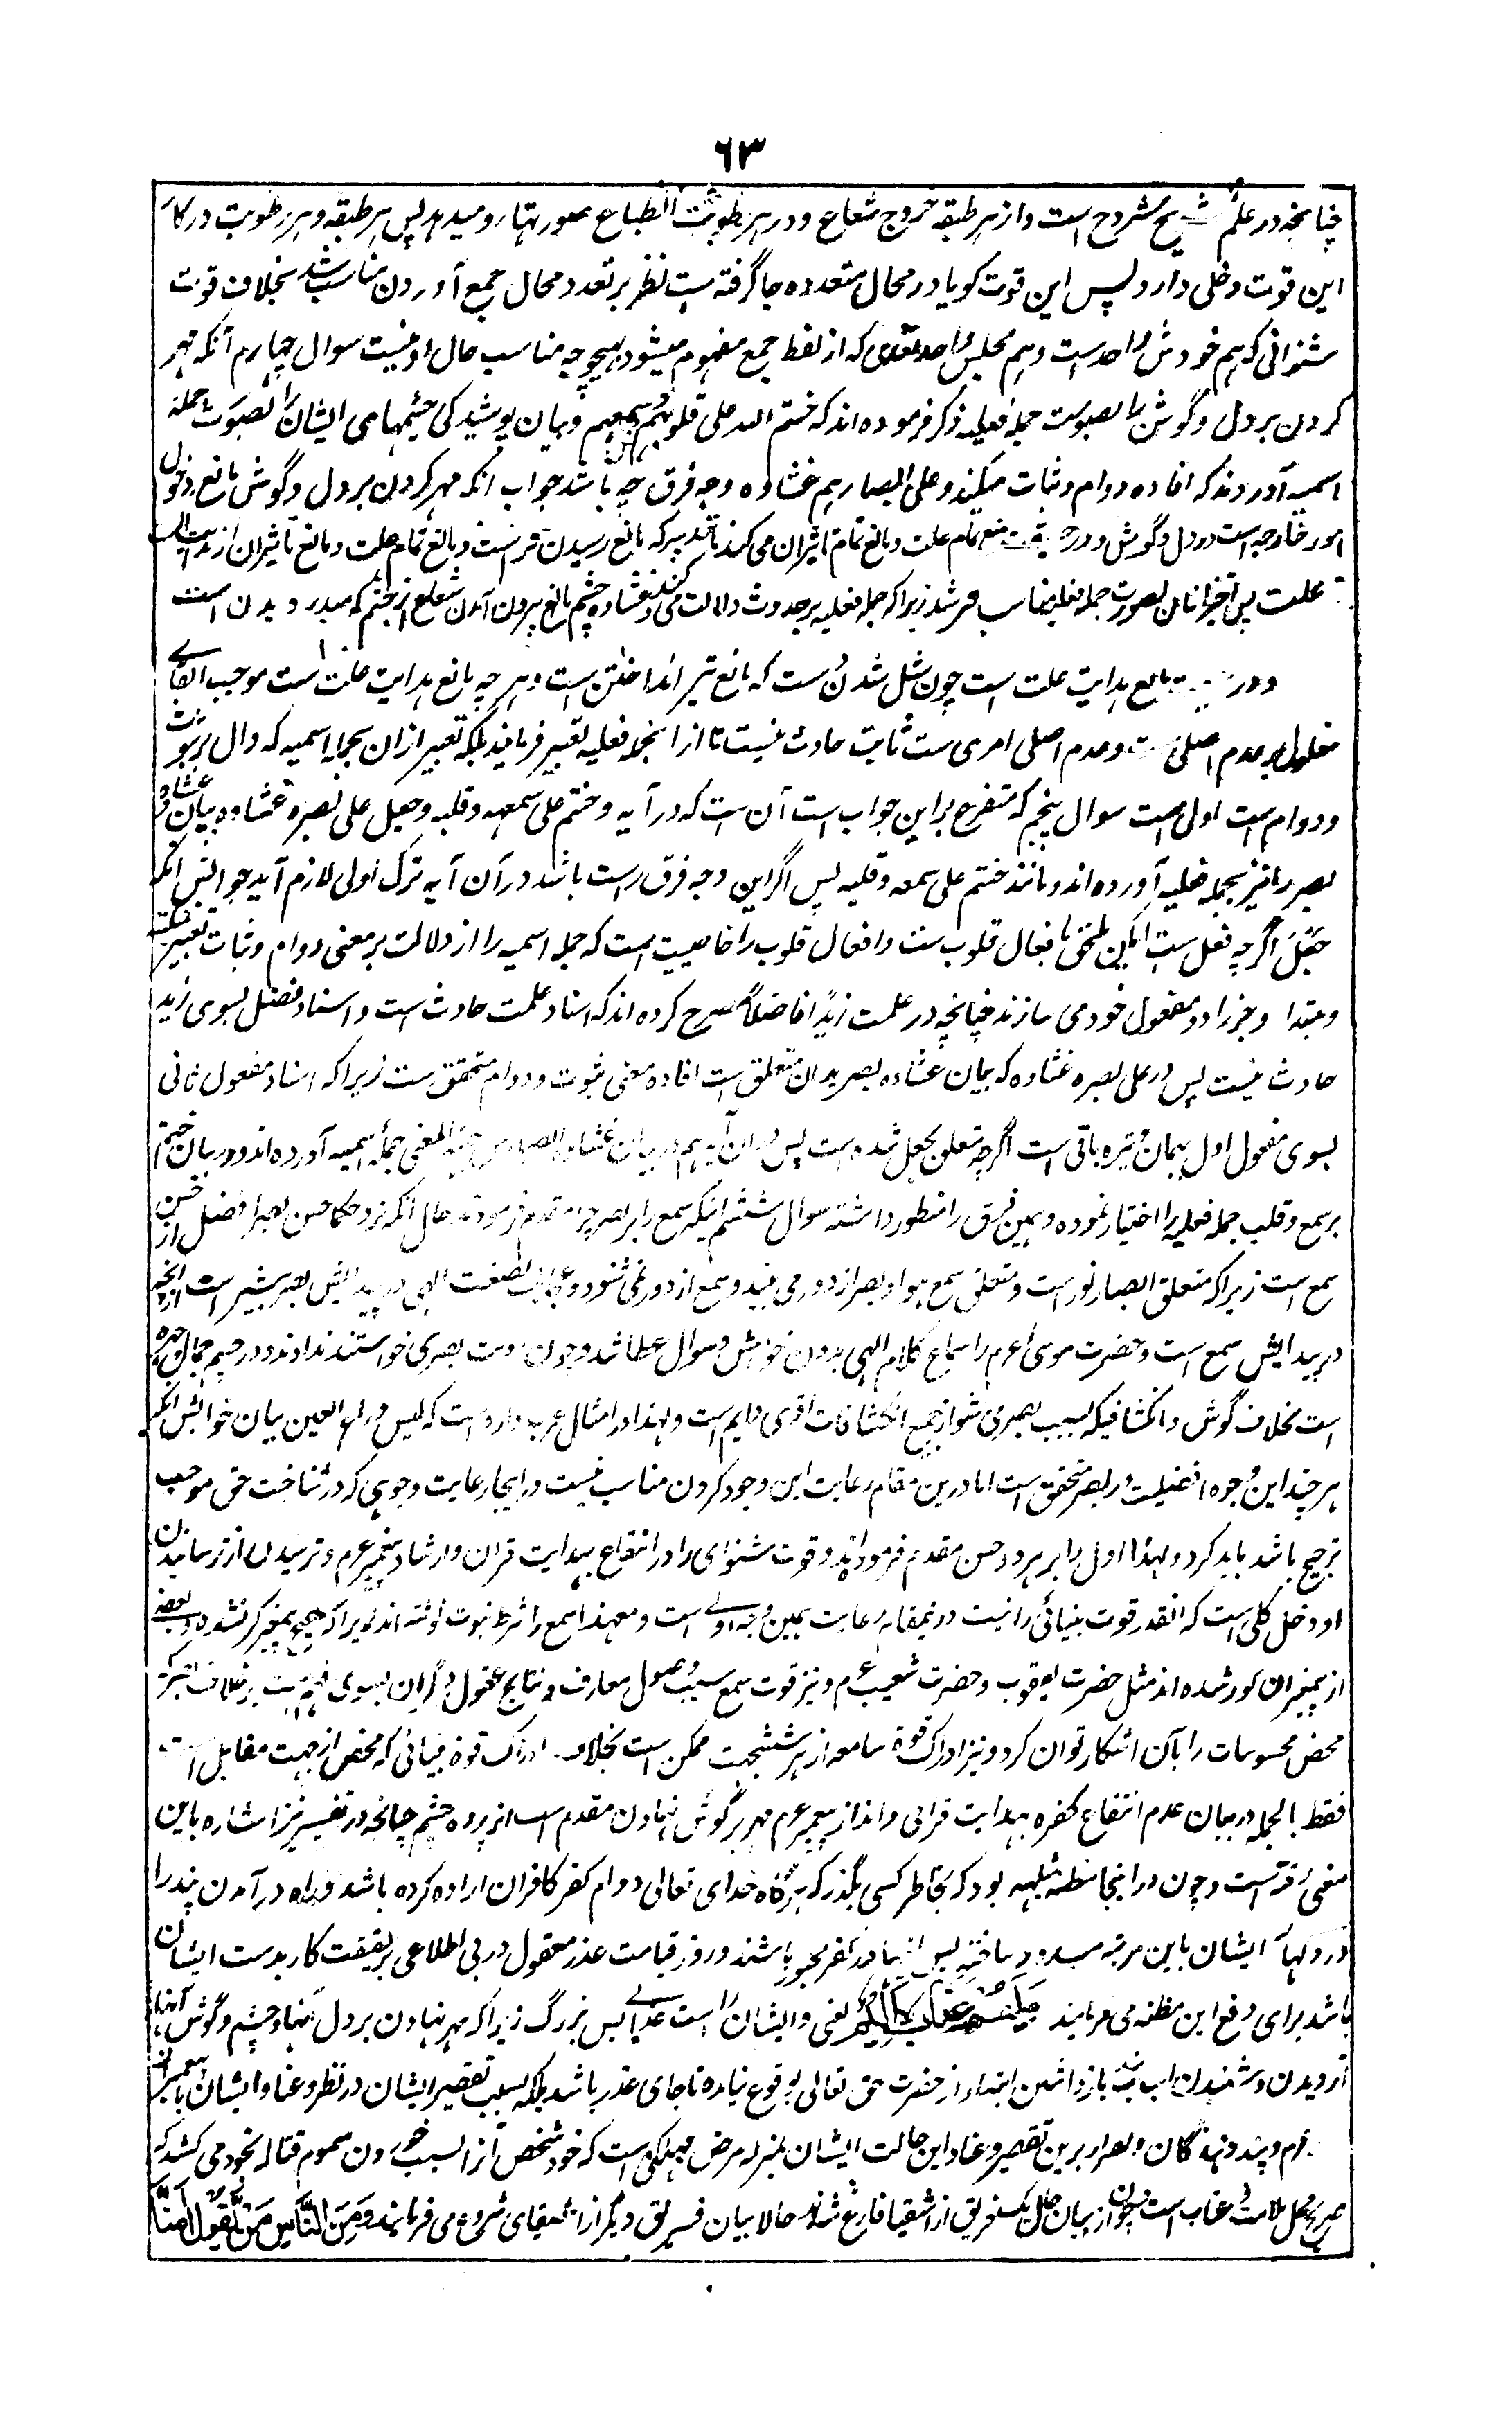 ٦٣
چنانچه در علم تشریح مشروح است و از هر طبقه خروج شعاع و در هر رطوبت انطباع صور تنها رو میدهد پس هر طبقه و هر رطوبت در کار
این قوت دخلی دارد پس این قوت گویا در محال متعدده جا گرفته است نظر بر تعدد محال جمع آوردن مناسب شد بخلاف قوت
شنوائی که هم خودش واحد است و هم محلش واحد تعددی که از لفظ جمع مفهوم میشود بهیچ وجه مناسب حال او نیست سوال چهارم آنکه مهر
کردن بر دل و گوش را بصورت جمله فعلیه ذکر فرموده اند که ختم الله علی قلوبهم و علی سمعهم و بیان پوشیدگی چشمهای ایشان را بصورت جمله
اسمیه آوردند که افاده دوام و ثبات میکند و علی ابصارهم غشاوه وجه فرق چه باشد جواب آنکه مهر کردن بر دل و گوش مانع دخول
امور خارجه است در دل و گوش و در حقیقت منع تمام علت و مانع تمام تاثیر آن می کند مانند سپر که مانع رسیدن تیر است و مانع تمام علت و مانع تاثیر آن از
علت پس آخر آنان بصورت جمله فعلیه مناسب تر شد زیرا که جمله فعلیه بر حدوث دلالت می کند و غشاوه چشم مانع بیرون آمدن شعاع از چشم که مبدر و یدن است
و در حقیقت مانع بدایت علت است چون شل شدن دست که مانع تیر انداختن است و هر چه مانع بدایت علت است موجب ابقای
معلول بر عدم اصلی است و عدم اصلی امری ست ثابت حادث نیست تا از آن بجمله فعلیه تعبیر فرمایند بلکه تعبیر از ان بجمله اسمیه که دال بر ثبوت
و دوام است اولی است سوال پنجم که متفرع بر این جواب است آن است که در آیه و ختم علی سمعه و قلبه و جعل علی بصره غشاوه بیان غشاوه
بصر را نیز بجمله فعلیه آورده اند مانند ختم علی سمعه و قلبه پس اگر این وجه فرق راست باشد در آن آیه ترک اولی لازم آید جوابش آنکه
جَعَلَ اگرچه فعل ست لیکن ملحق بافعال قلوب ست و افعال قلوب را خاصیت است که جمله اسمیه را از دلالت بر معنی دوام و ثبات تغییر نمیکنند
و مبتدا و خبر را دو مفعول خود می سازند چنانچه در علمت زیدًا فاضلًا مصرح کرده اند که اسناد علمت حادث است و اسناد فضل بسوی زید
حادث نیست پس در علی بصره غشاوه که بیان غشاوه بصر بدان متعلق است افاده معنی ثبوت و دوام متحقق ست زیرا که اسناد مفعول ثانی
بسوی مفعول اول بهمان وتیره باقی است اگرچه متعلق بجعل شده است پس در آن آیه هم در بیان غشاوه ابصار من حیث المعنی جمله اسمیه آورده اند و در بیان ختم
بر سمع و قلب جمله فعلیه را اختیار نموده و همین فرق را منظور داشته سوال ششم اینکه سمع را بر بصر چرا مقدم فرمودند حال آنکه نزد حکما حس بصر افضل از حس
سمع است زیرا که متعلق ابصار نور است و متعلق سمع هوا و بصر از دور می بیند و سمع از دور نمی شنود و عجایب صنعت الهی در پیدایش بصر بیشتر است از آنچه
در پیدایش سمع است و حضرت موسی ع م را سماع کلام الهی بدون خواهش و سوال عطا شد و چون رویت بصری خواستند ندادند و در چشم جمال چهره
است بخلاف گوش و انکشافیکه بسبب بصر می شود از جمیع انکشافات اقوی و اتم است و لهذا در امثال عرب وارد است که لیس وراء العین بیان جوابش آنکه
هر چند این وجوه افضلیت در بصر متحقق است اما درین مقام رعایت این وجوه کردن مناسب نیست در اینجا رعایت وجوهی که در شناخت حق موجب
ترجیح باشد باید کرد و لهذا اول را بر هر دو حس مقدم فرموده اند و قوت شنوای را در انتفاع بهدایت قران و ارشاد پیغمبر ع م و ترسیدن از ترسانیدن
او دخل کلی است که انقدر قوت بینائی را نیست درینمقام رعایت همین وجه اولی است و معهذا سمع را شرط نبوت نوشته اند زیرا که هیچ پیغمبر کر نشده و بعضی
از پیغمبران کور شده اند مثل حضرت یعقوب و حضرت شعیب ع م و نیز قوت سمع سبب وصول معارف و نتایج عقول دیگران بسوی فهم است بر خلاف بصر که
محض محسوسات را بآن اشکار توان کرد و نیز ادراک قوة سامعه از هر شش جهت ممکن است بخلاف ادراک قوة بینائی که محض از جهت مقابل است
فقط بالجمله در بیان عدم انتفاع کفره بهدایت قرانی و انذار پیغمبر ع م مهر بر گوش نهادن مقدم است از پرده چشم چنانچه در تفسیر نیز اشاره باین
معنی رفته است و چون در اینجا مظنه شبهه بود که بخاطر کسی بگذرد که هرگاه خدای تعالی دوام کفر کافران اراده کرده باشد و راه در آمدن پند را
در دلهای ایشان باین مرتبه مسدود ساخته پس اینها در کفر مجبور باشند و روز قیامت عذر معقول در بی اطلاعی بر حقیقت کار بدست ایشان
باشد برای دفع این مظنه می فرمایند وَلَهُمْ عَذَابٌ عَظِيمٌ یعنی و ایشان را است عذابی بس بزرگ زیرا که مهر نهادن بر دل آنها و چشم و گوش آنها
از دیدن و شنیدن اسباب هدایت بازداشتن ابتداء از حضرت حق تعالی بوقوع نیامده تا جای عذر باشد بلکه بسبب تقصیر ایشان در نظر و عناد ایشان با پیغمبران
ع م و پند دهندگان و اصرار برین تقصیر و عناد این حالت ایشان بمنزله مرض مهلکی است که خود شخص آنرا بسبب خوردن سموم قتاله بخود می کشد که
صریح محل ملامت و عتاب است چون از بیان حال یک فریق از اشقیا فارغ شدند حالا بیان فریق دیگر از اشقیای شروع می فرمایند وَمِنَ النَّاسِ مَنْ يَقُولُ آمَنَّا